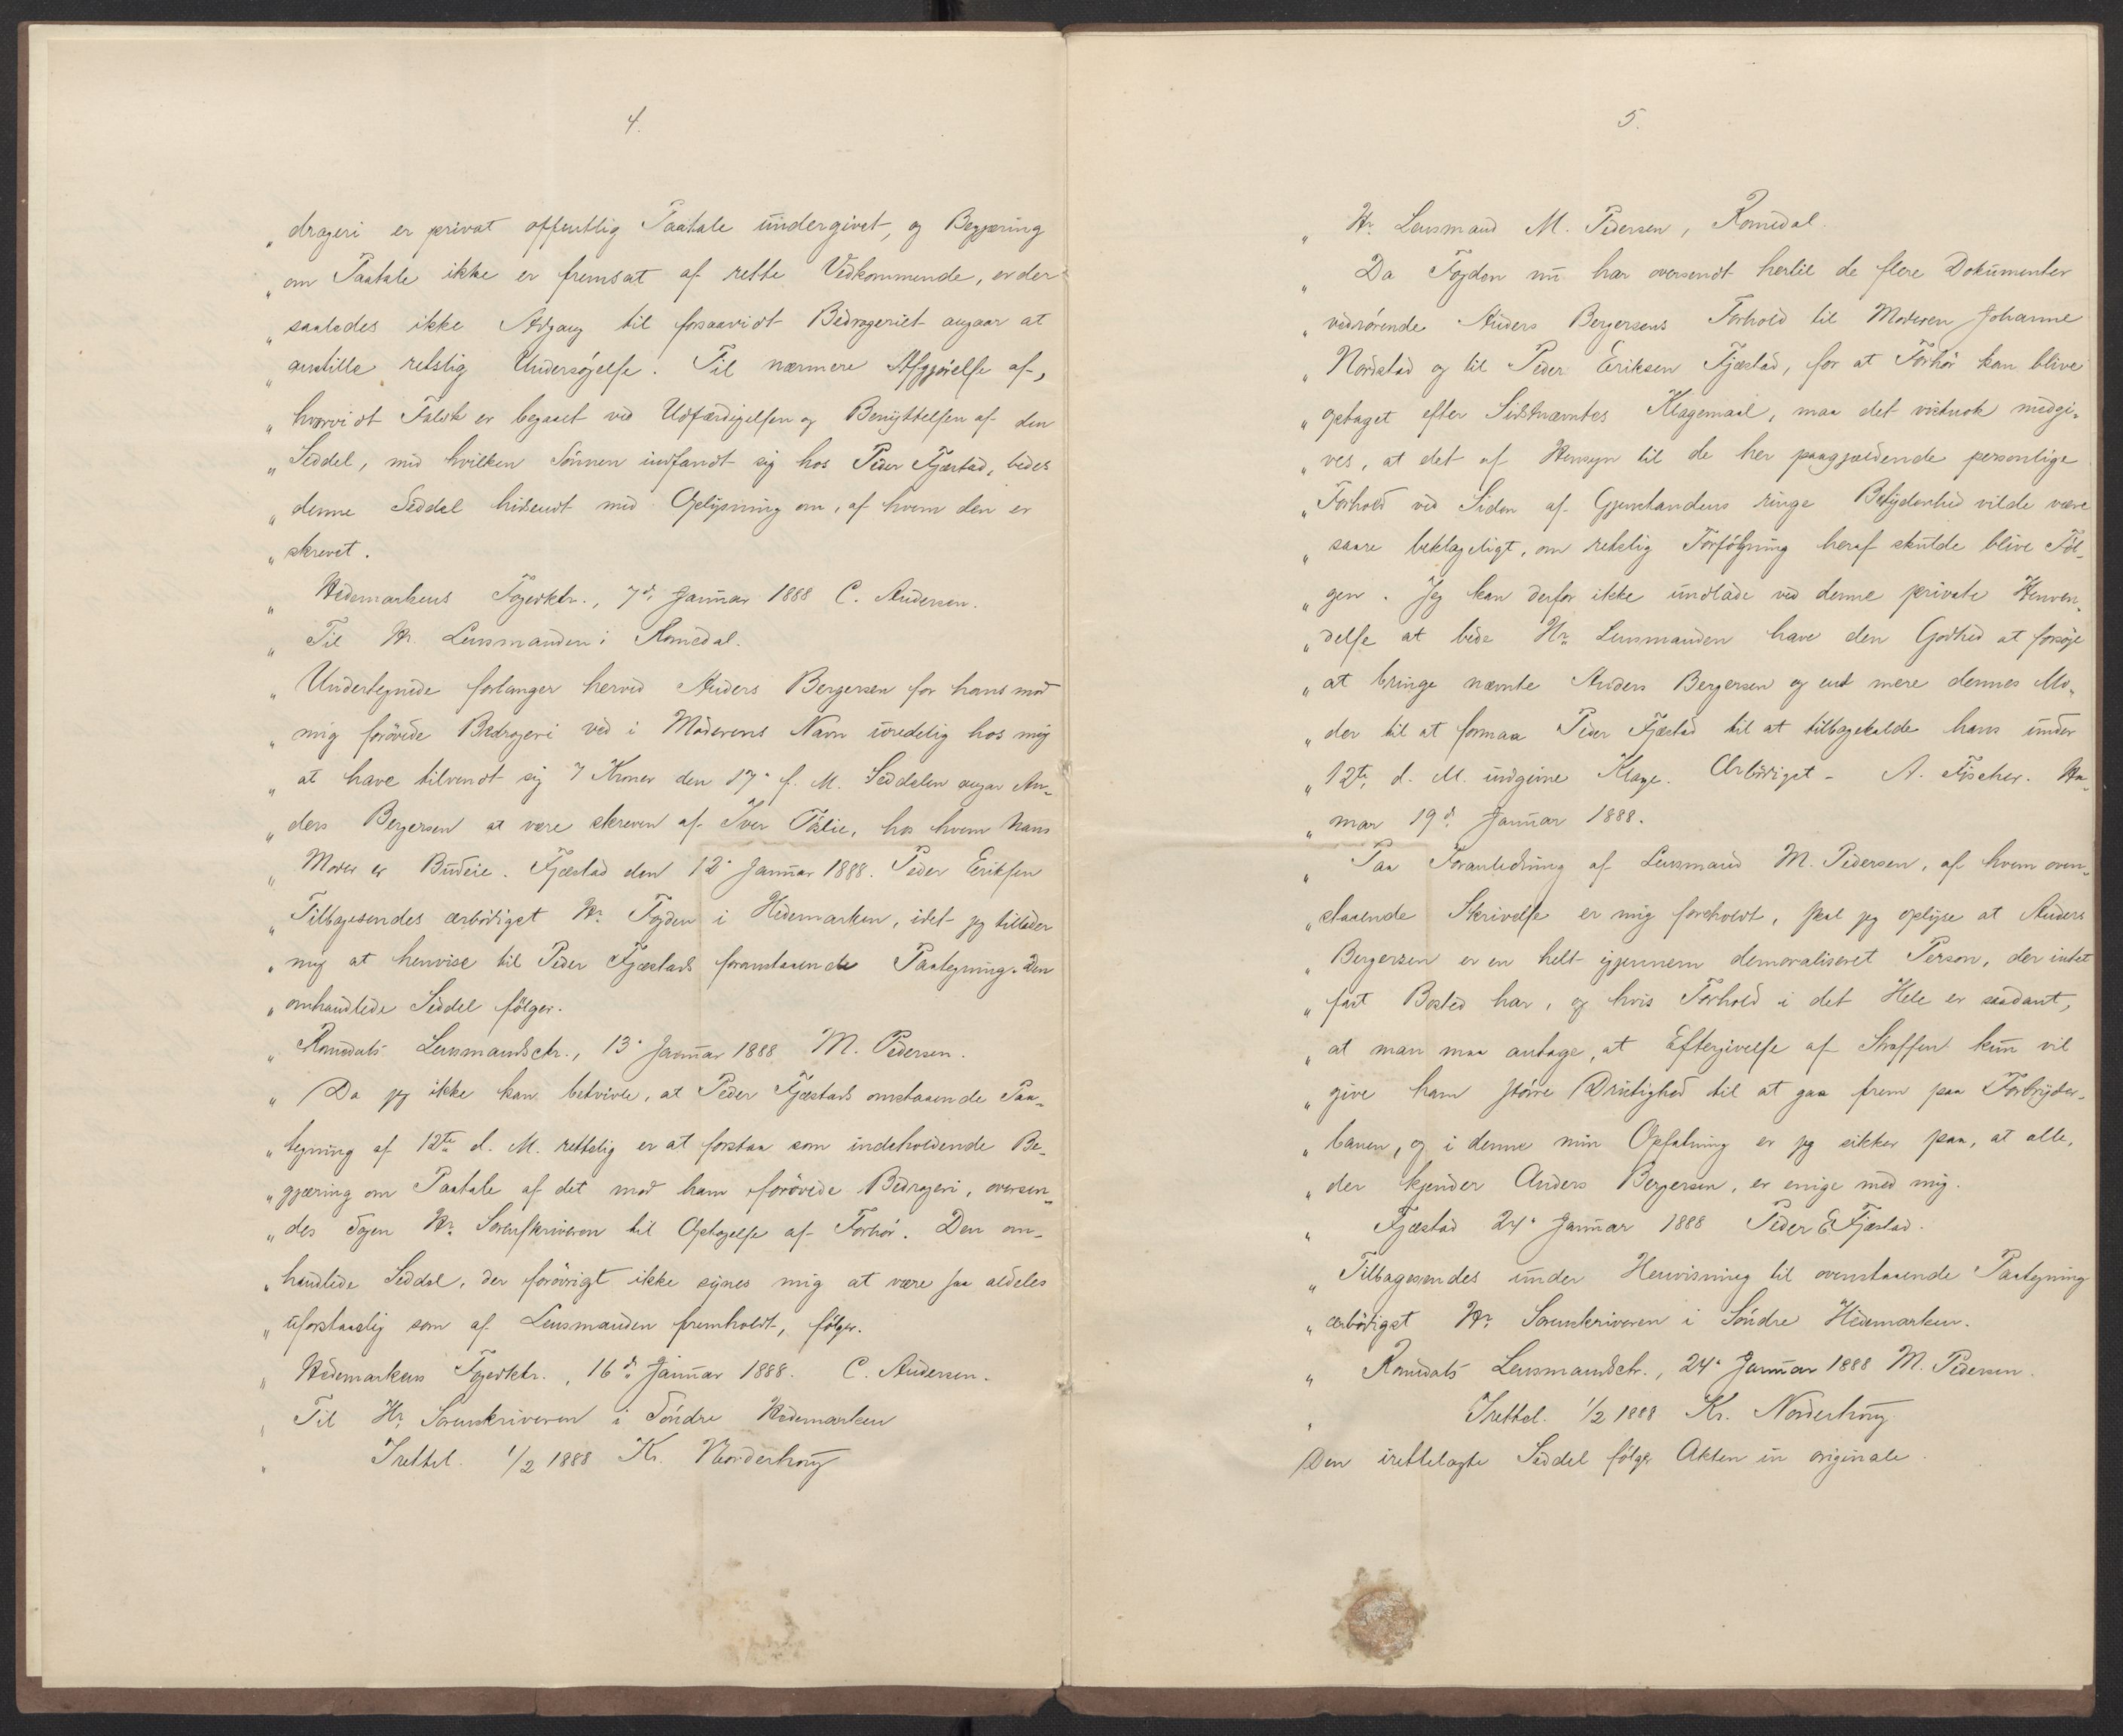 4.
„ drageri er privat offentlig Paatale undergivet, og Begjæring
„ om Paatale ikke er fremsat af rette Vedkommende, er der
„ saaledes ikke Adgang til forsaavidt Bedrageriet angaar at
„ anstille retslig Undersøgelse. Til nærmere Afgjørelse af,
„ hvorvidt Falsk er begaaet ved Udfærdigelsen og Benyttelsen af den
„ Seddel, med hvilken Sønnen indfandt sig hos Peder Fjæstad, bedes
„ denne Seddel hidsendt med Oplysning om, af hvem den er
„ skrevet.
„ Hedemarkens Fogedktr., 7d. Januar 1888 C. Andersen.
„ Til Hr. Lensmanden i Romedal.
„ Undertegnede forlanger herved Anders Bergersen for hans mod
„ mig forøvede Bedrageri ved i Moderens Navn uredelig hos mig
„ at have tilvendt sig 7 Kroner den 17. f. M. Seddelen angar An-
„ ders Bergersen at være skreven af IverØlie, hos hvem hans
„ Moder er Budeie. Fjæstad den 12. Januar 1888. Peder Eriksen
„ Tilbagesendes ærbødigst Hr. Fogden i Hedemarken, idet jeg tillader
„ mig at henvise til Peder Fjæstads foranstaaende Paategning. Den
„ omhandlede Seddel følger.
„ Romedals Lensmandsctr., 13. Januar 1888 M. Pedersen.
„ Da jeg ikke kan betvivle, at Peder Fjæstads omstaaende Paa-
„ tegning af 12te d. M. rettelig er at forstaa som indeholdende Be-
„ gjæring om Paatale af det mod ham forøvede Bedrageri, oversen-
„ des Sagen Hr. Sorenskriveren til Optagelse af Forhør. Den om-
„ handlede Seddel, der forøvrigt ikke synes mig at være saa aldeles
„ uforstaaelig som af Lensmanden fremholdt, følger.
„ Hedemarkens Fogedktr., 16d. Januar 1888. C. Andersen.
„ Til Hr. Sorenskriveren i Søndre Hedemarken
„ Irettel. 1/2 1888 Kr. Norderhoug
5.
„ Hr. Lensmand M. Pedersen, Romedal.
„ Da Fogden nu har oversendt hertil de flere Dokumenter
„ vedrørende Anders Bergersens Forhold til Moderen Johanne
„ Nordstad og til Peder Eriksen Fjæstad, for at Forhør kan blive
„ optaget efter Sidstnævntes Klagemaal, maa det vistnok medgi-
„ ves, at det af Hensyn til de her paagjældende personlige
„ Forhold ved Siden af Gjenstandens ringe Betydenhed vilde være
„ saare beklageligt, om retslig Forfølgning heraf skulde blive Føl-
„ gen. Jeg kan derfor ikke undlade ved denne private Henven-
„ delse at bede Hr. Lensmanden have den Godhed at forsøge
„ at bringe nævnte Anders Bergersen og end mere dennes Mo-
„ der til at formaa Peder Fjæstad til at tilbagekalde hans under
„ 12te d. M. indgivne Klage. Ærbødigst – A. Fischer. Ha-
„ mar 19d. Januar 1888.
„ Paa Foranledning af Lensmand M. Pedersen, af hvem oven-
„ staaende Skrivelse er mig foreholdt, skal jeg oplyse at Anders
„ Bergersen er en helt igjennem demoraliseret Person, der intet
„ fast Bosted har, og hvis Forhold i det Hele er saadant,
„ at man maa antage, at Eftergivelse af Straffen kun vil
„ give ham større Dristighed til at gaa frem paa Forbryder-
„ banen, og i denne min Opfatning er jeg sikker paa, at alle,
„ der kjender Anders Bergersen, er enige med mig.
„ Fjæstad 24. Januar 1888 Peder E Fjæstad.
„ Tilbagesendes under Henvisning til ovenstaaende Paategning
„ ærbødigst Hr. Sorenskriveren i Søndre Hedemarken.
„ Romedals Lensmandsctr., 24. Januar 1888 M. Pedersen.
„ Irettel. 1/2 1888 Kr. Norderhoug
Den irettelagte Seddel følger Akten in originale.